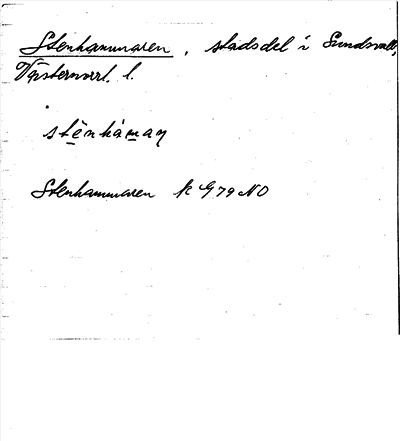 Stenhammaren, stadsdel i Sundsvall,
Västernorrl. l.
stènhámaṇ
Stenhammaren k G 79 NO